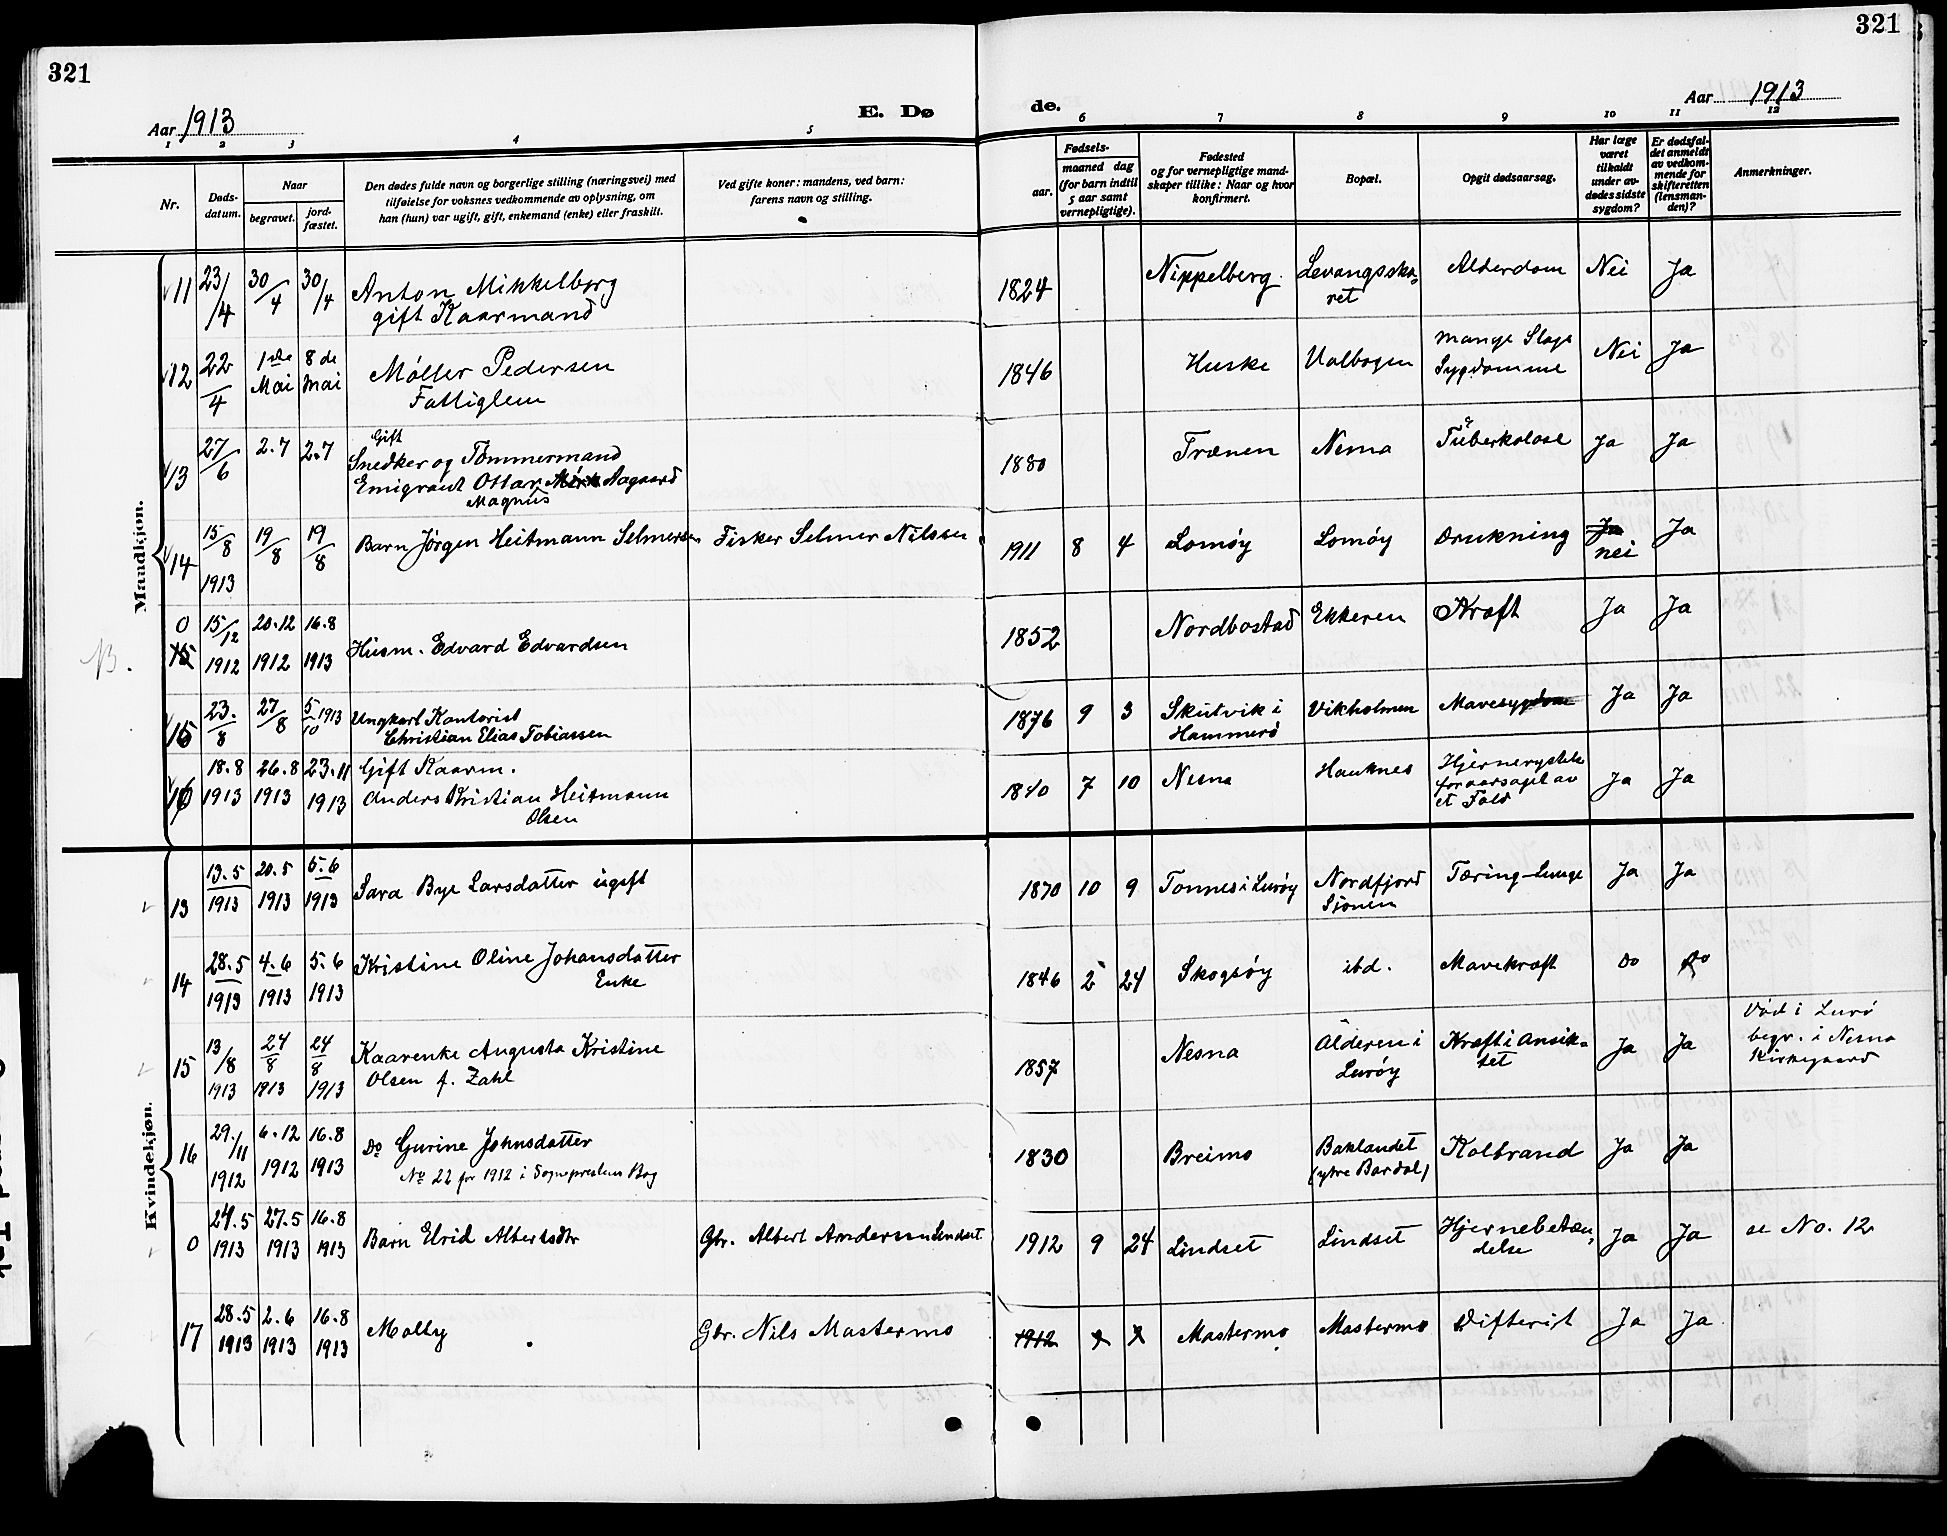 321
321
Aar 1913
E. Dø
de.
Aar 1913
1 2 3 4 5 6 7 8 9 10 11 12
Nr.
Døds-
datum.
Naar
begravet.
jord-
fæstet.
Den dødes fulde navn og borgerlige stilling (næringsvei) med
tilføielse for voksnes vedkommende av oplysning, om
han (hun) var ugift, gift, enkemand (enke) eller fraskilt.
Ved gifte koner: mandens, ved barn:
farens navn og stilling.
Fødsels-
aar.
maaned dag
(for barn indtil
5 aar samt
vernepligtige).
Fødested
og for vernepligtige mand-
skaper tillike: Naar og hvor
konfirmert.
Bopæl.
Opgit dødsaarsag.
Har læge
været
tilkaldt
under av-
dødes sidste
sygdom?
Er dødsfal-
det anmeldt
av vedkom-
mende for
skifteretten
(lensman-
den)?
Anmerkninger.
Mandkjøn.
11 23/4 30/4 30/4 Anton Mikkelborg
gift Kaarmand
1824 Nippelberg Levangsska-
ret Alderdom Nei Ja
12 22/4 1ste Mai 8de Mai Møller Pedersen
Fattiglem
1846 Huske Valbogen mange Slags
Sygdomme Nei Ja
13 27/6 2.7 2.7 Gift
Snedker og Tømmermand
Emigrant Ottar Aagaard
Magnus
1880 Trænen Nesna Tuberkolose Ja Ja
14 15/8 1913 19/8 19/8 Barn Jørgen Heitmann Selmersen Fisker Selmer Nilssen
1911 8 4 Lomøy Lomøy Drukning Ja
nei Ja
B.
0 15 15/12 1912 20.12 1912 16.8 1913 Husm. Edvard Edvardsen
1852 Nordbostad Ekkeren Kræft Ja Ja
15 23/8 27/8 5/10 1913 Ungkarl Kontorist
Christian Elias Tobiassen
1876 9 3 Skutvik i
Hammerø Vikholmen Mavesygdom Ja Ja
16 18.8 1913 26.8 1913 23.11 1913 Gift Kaarm.
Anders Kristian Heitmann
Olsen
1840 7 10 Nesna Hauknes Hjernerystelse
foraarsaget av
et Fald Ja Ja
Kvindekjøn.
13 13.5 1913 20.5 1913 5.6 1913 Sara Bye Larsdatter ugift
1870 10 9 Tonnes i Lurøy Nordfjord
Sjonen Tæring-Lunge Ja Ja
14 28.5 1913 4.6 1913 5.6 1913 Kristine Oline Johansdatter
Enke
1846 2 24 Skogsøy ibd. Mavekræft Do Do
15 13/8 1913 24/8 1913 24/8 1913 Kaarenke Augusta Kristine
Olsen f. Zahl
1857 Nesna Alderen i
Lurøy Kræft i Ansik-
tet Ja Ja Død i Lurø
begr. i Nesna
Kirkegaard
16 29./11 1912 6.12 1912 16.8 1913 Do Gurine Johnsdatter
No 22 for 1912 i Sogneprestens Bog
1830 Breimo Baklandet
(ytre Bardal) Kolbrand Ja Ja
0 24.5 1913 27.5 1913 16.8 1913 Barn Elrid Albertsdtr Gbr. Albert Andersen Lindset
1912 9 24 Lindset Lindset Hjernebetæn-
delse Ja Ja se No. 12
17 28.5 1913 2.6 1913 16.8 1913 Malby Gbr. Nils Mastermo
1912 Mastermo Mastermo Difterit Ja Ja